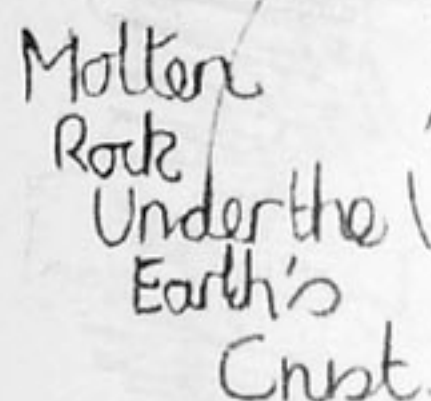 Molten
Rock
Under the
Earth's
Crust.